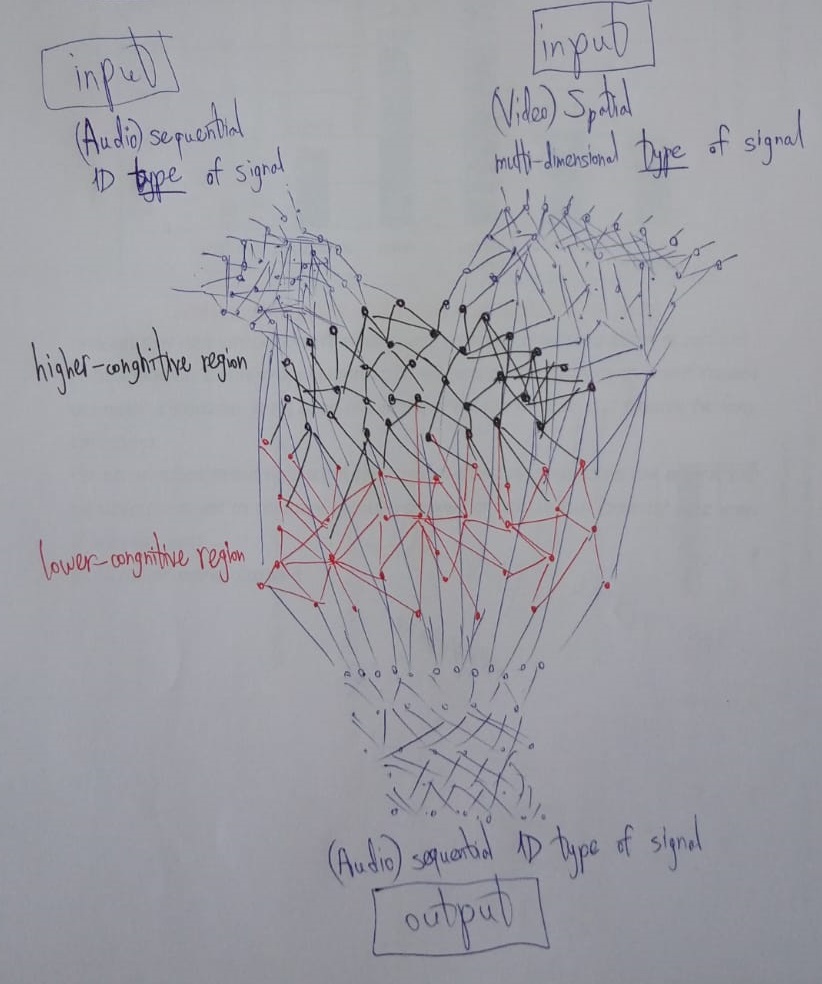 input
(Audio) sequential
1D type of signal
input
(Video) Spatial
multi-dimensional type of signal
higher-conghitive region
lower-congnitive region
(Audio) sequential 1D type of signal
output